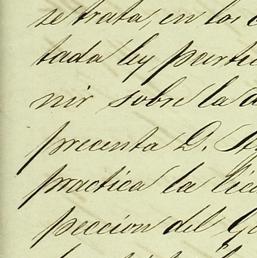 se trata, en los
tada ley parti
nir sobre la
precenta D.
practica la lic
peccion del Go